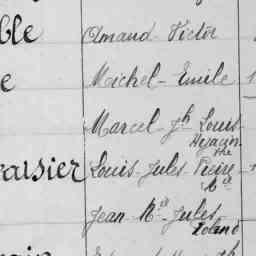 ble Amand Victor
e Michel Emile 1
Marcel Jh Louis
Hyacin
the
raisier Louis Jules Pierre
Mie
Jean Mie Jules
Roland